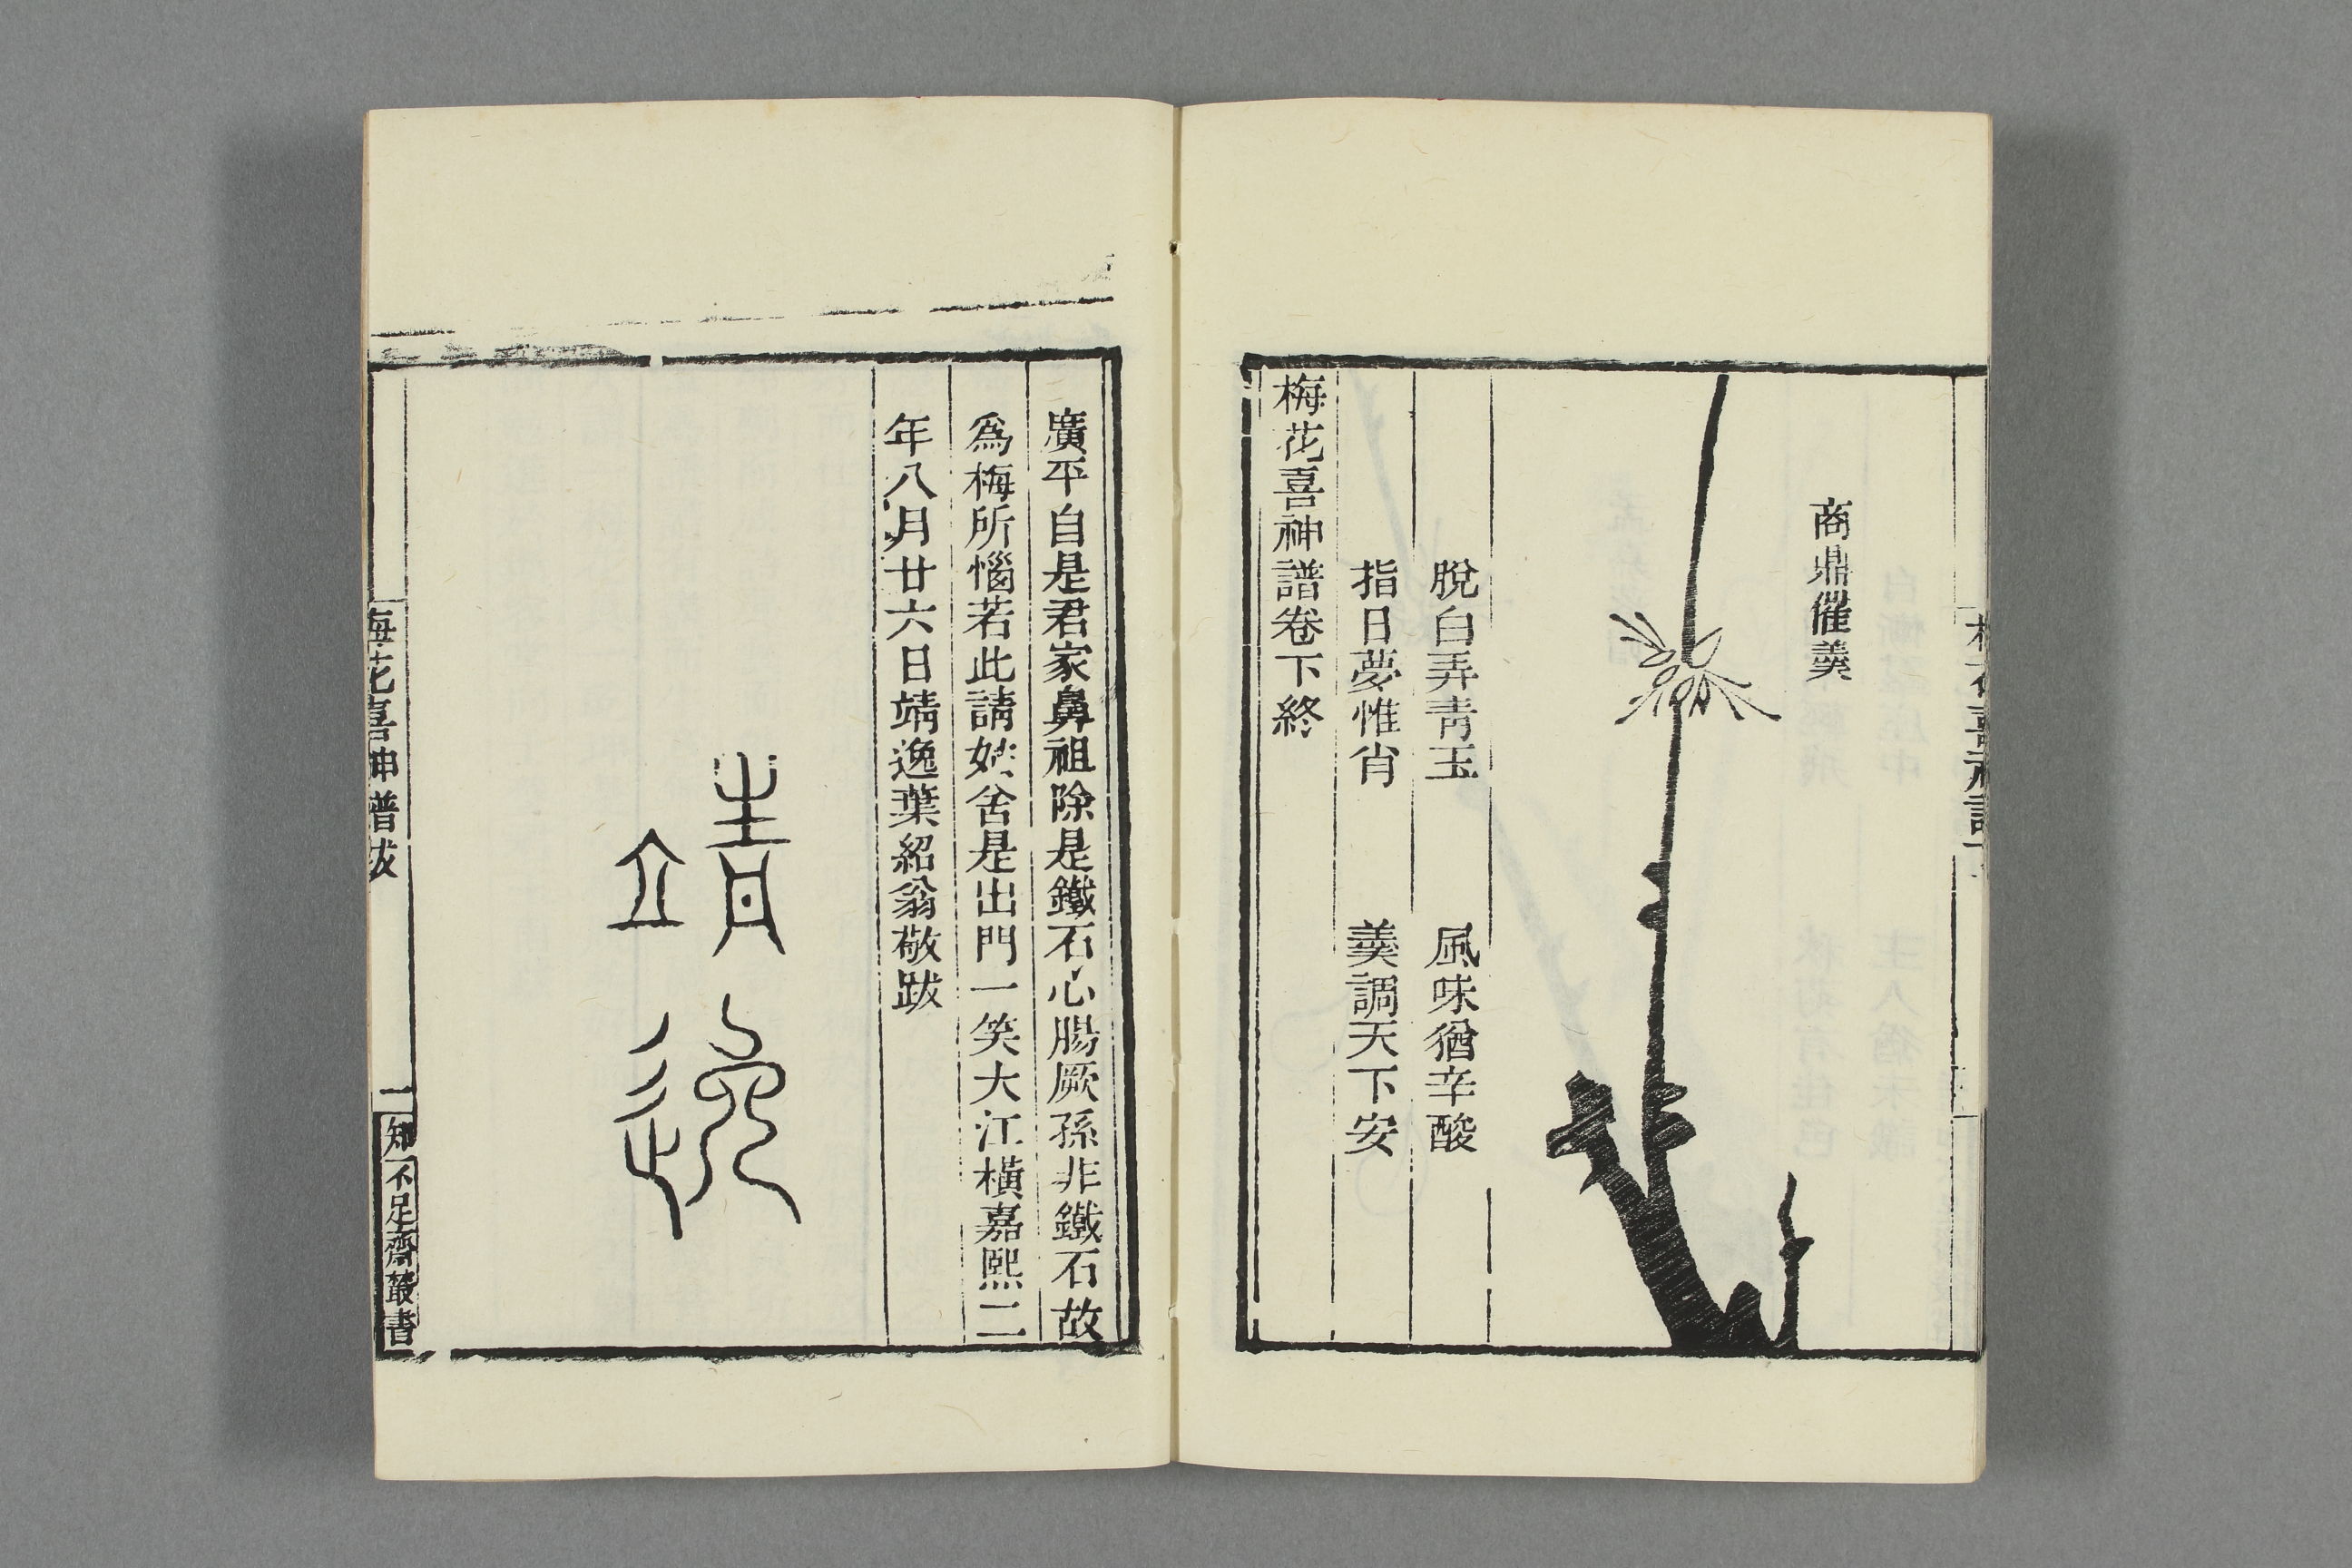 商鼎催羹
脫白弄青玉 風味猶辛酸
指日夢惟肖 羹調天下安
梅花喜神譜卷下終
廣平自是君家鼻祖除是鐵石心腸厥孫非鐵石故
爲梅所惱若此請姑舍是出門一笑大江橫嘉熙二
年八月廿六日靖逸葉紹翁敬跋
靖逸
梅花喜神譜跋
一
知不足齋叢書